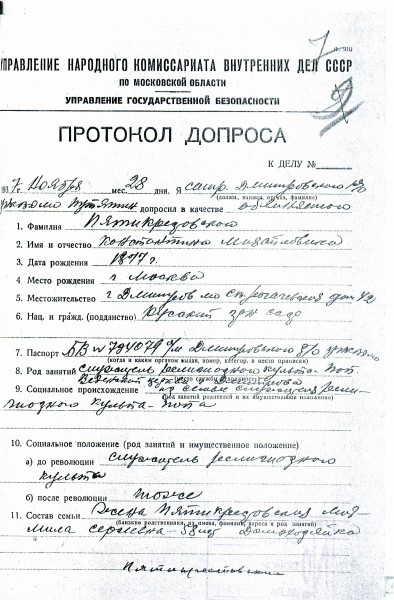 УПРАВЛЕНИЕ НАРОДНОГО КОМИССАРИАТА ВНУТРЕННИХ ДЕЛ СССР
ПО МОСКОВСКОЙ ОБЛАСТИ
УПРАВЛЕНИЕ ГОСУДАРСТВЕННОЙ БЕЗОПАСНОСТИ
ПРОТОКОЛ ДОПРОСА
К ДЕЛУ №
193 7 г. Ноября мес. 28 дня. Я сотр. Дмитровского
допросил в качестве обвиняемого
1. Фамилия Пятикрестовского
2. Имя и отчество Константина Михайловича
3. Дата рождения 1877 г.
4. Место рождения г Москва
5. Местожительство г Дмитров
6. Нац. и гражд. (подданство) Русский
7. Паспорт БВ № 794079 Дмитровского
(когда и каким органом выдан, номер, категор. и место приписки)
8. Род занятий служитель религиозного культа - поп
церкви
9. Социальное происхождение из семьи служителя рели-
(род занятий родителей и их имущественное положение)
гиозного культа - попа
10. Социальное положение (род занятий и имущественное положение)
а) до революции служитель религиозного
культа
б) после революции тоже
11. Состав семьи Жена Пятикрестовская
(близкие родственники, их имена, фамилии, адреса и род занятий)
Сергеевна - домохозяйка